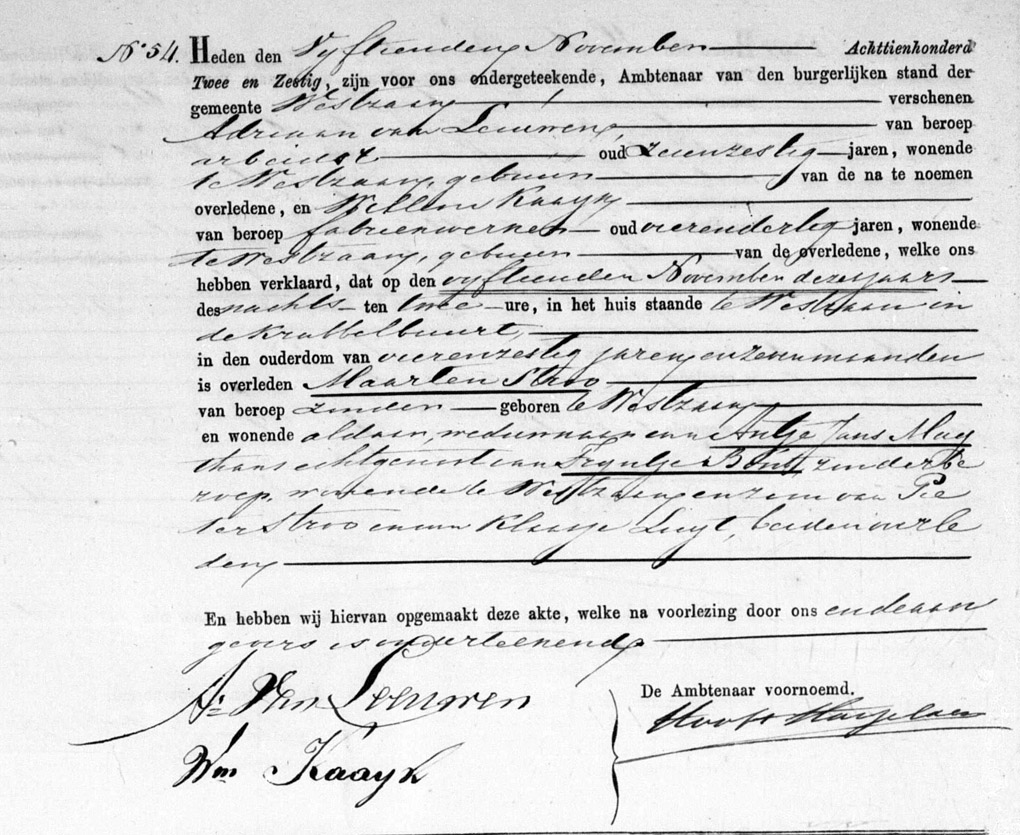 No. 54. Heden den Vyftienden November Achttienhonderd
Twee en Zestig, zijn voor ons ondergeteekende, Ambtenaar van den burgerlijken stand der
gemeente Westzaan verschenen
Adriaan van Leeuwen, van beroep
arbeider oud zevenzestig jaren, wonende
te Westzaan, gebuur van de na te noemen
overledene, en Willem Kaayk
van beroep fabriekwerker oud vierendertig jaren, wonende
te Westzaan, gebuur van de overledene, welke ons
hebben verklaard, dat op den vyftienden November dezes jaars
des nachts ten twee ure, in het huis staande te Westzaan in
de Krabbelbuurt,
in den ouderdom van vierenzestig jaren en zeven maanden
is overleden Maarten Stroo
van beroep zonder geboren te Westzaan
en wonende aldaar, weduwnaar van Antje Jans May
thans echtgenoot van Tryntje Bout, zonder be
roep, wonende te Westzaan, en zoon van Pie
ter Stroo en van Klaasje Luyt, beiden overle
den,
En hebben wij hiervan opgemaakt deze akte, welke na voorlezing door ons en de aan
gevers is onderteekend,
De Ambtenaar voornoemd.
A: Van Leeuwen
Wm Kaayk